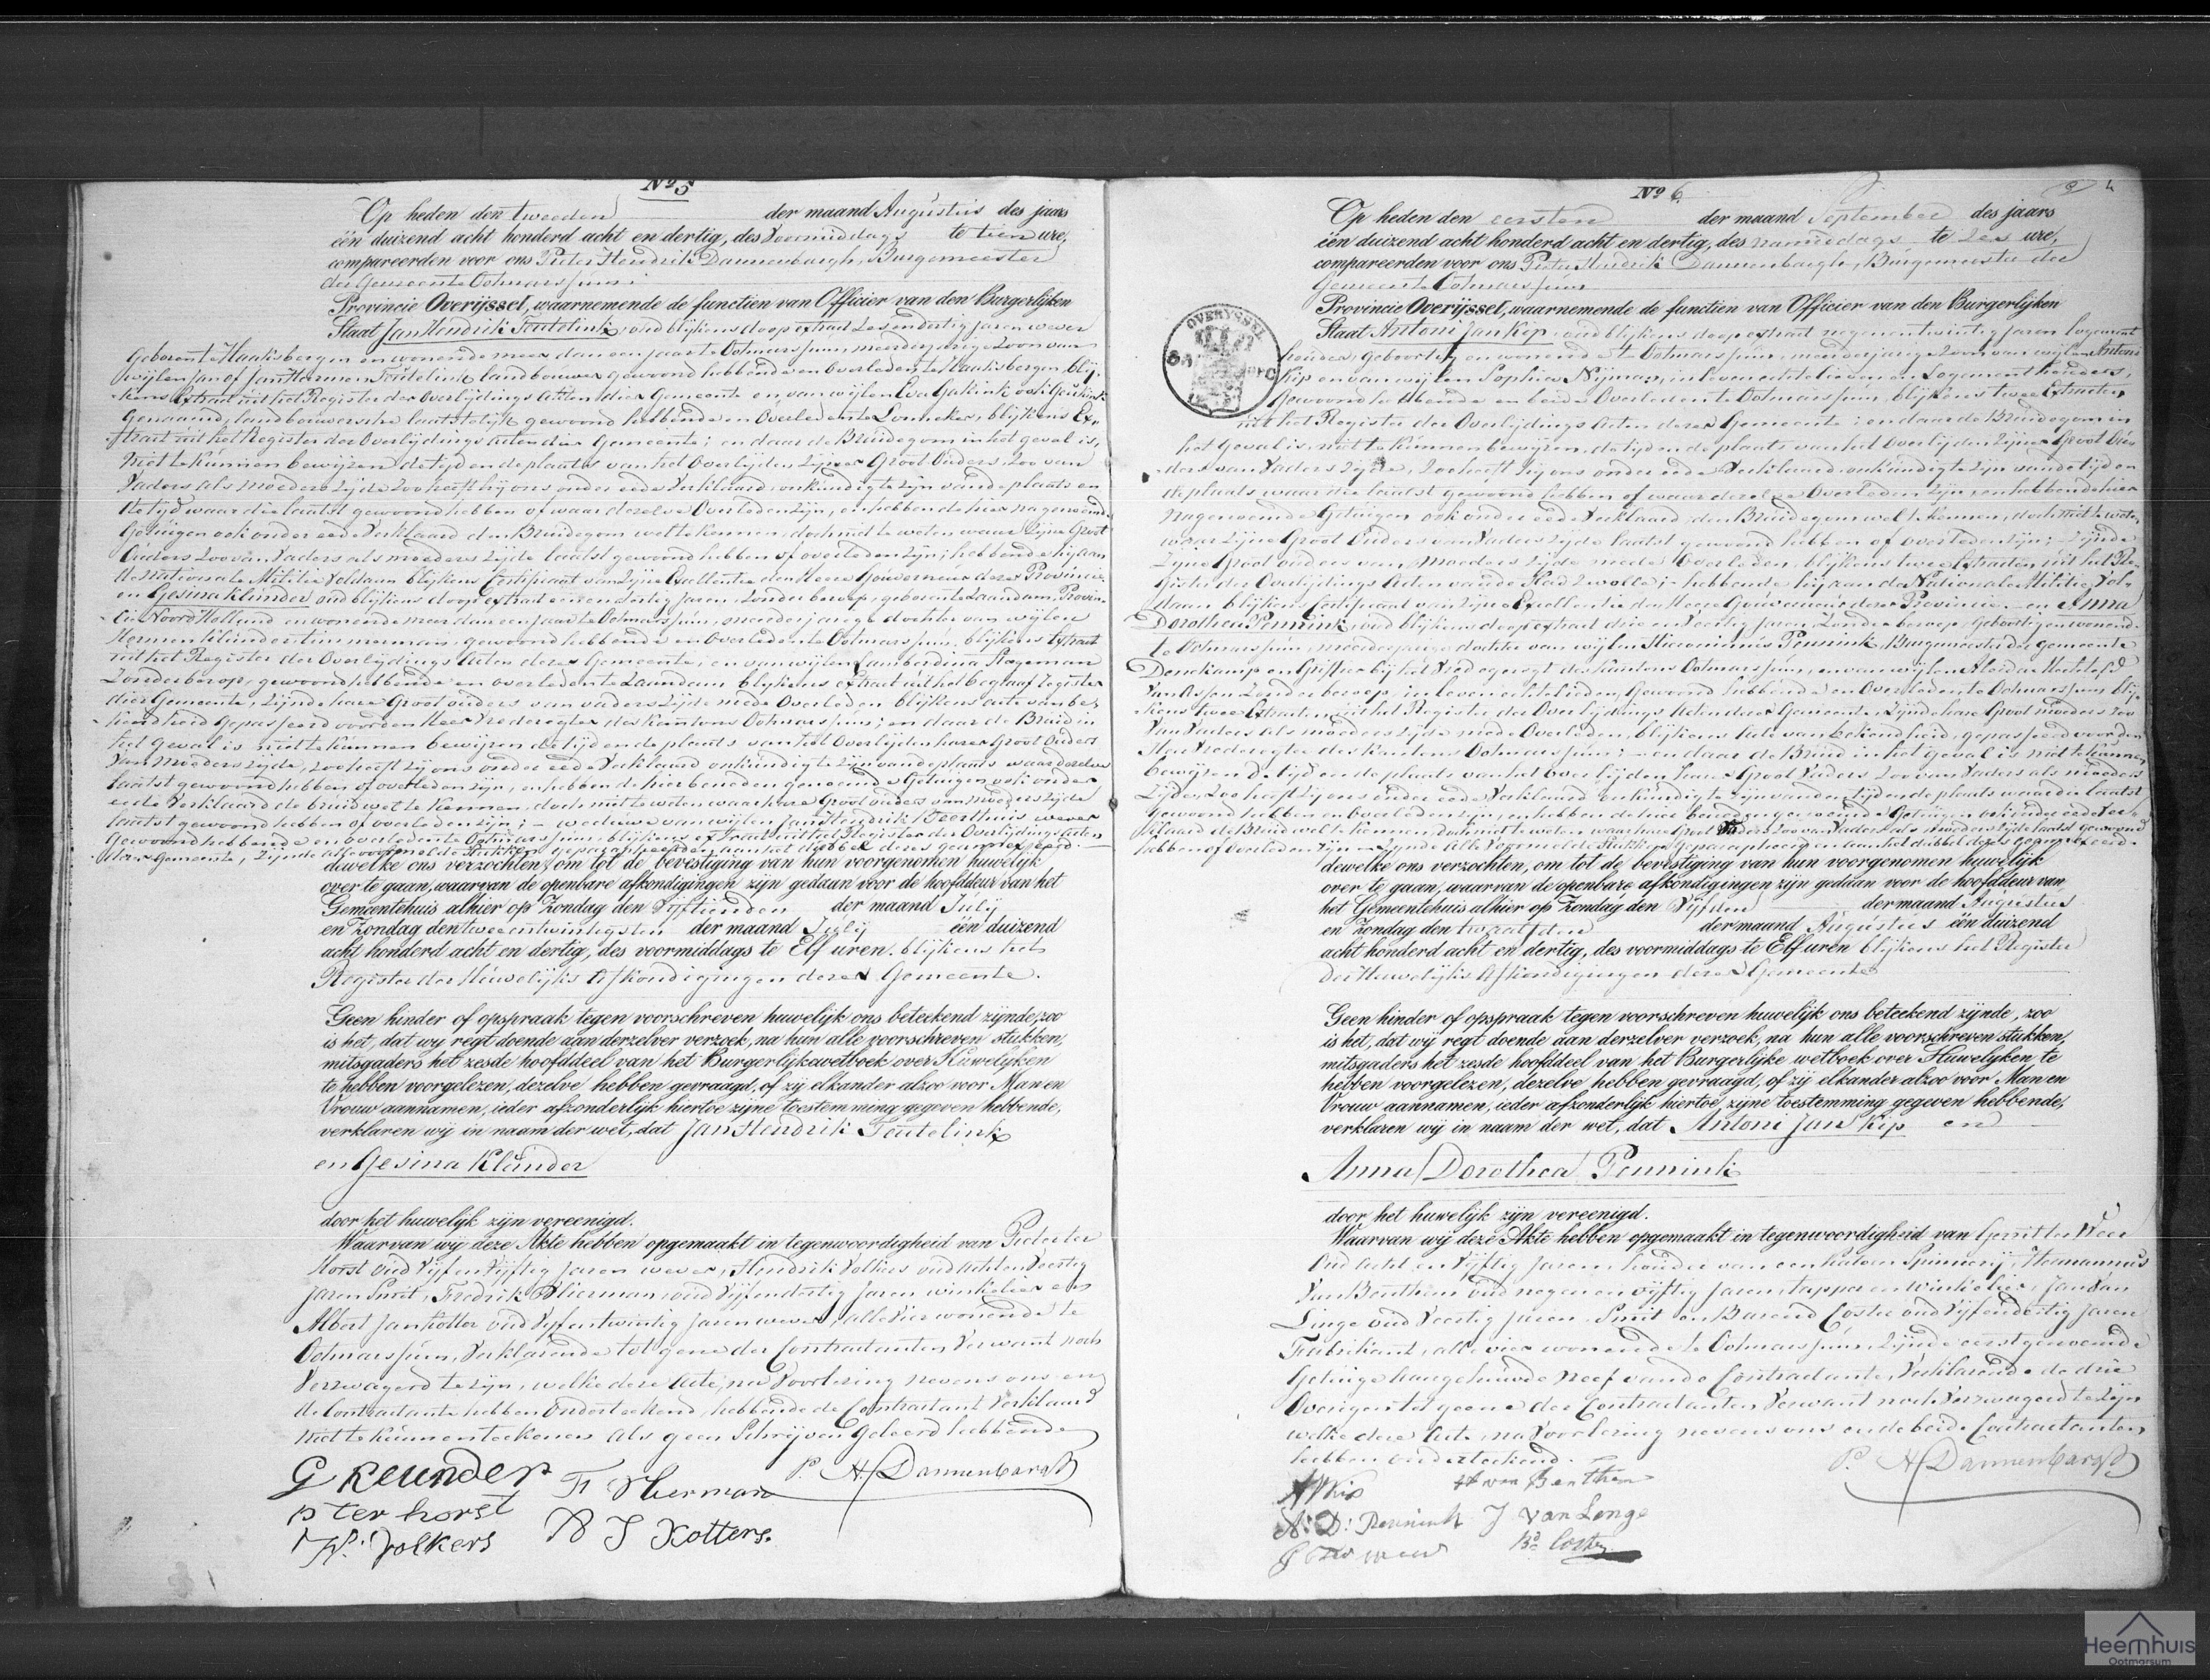 No 5
Op heden den tweeden der maand Augustus des jaars
één duizend acht honderd acht en dertig, des Voormiddags te tien ure,
compareerden voor ons Pieter Hendrik Dannenbargh, Burgemeester
der Gemeente Ootmarssum
Provincie Overijssel, waarnemende de functien van Officier van den Burgerlijken
Staat Jan Hendrik Teutelink, oud blijkens doop extract zes en dertig jaren wever
geboren te Haaksbergen en wonende meer dan een jaar te Ootmarssum, meerderjarige Zoon van
wijlen Jan of Jan Harmen Teutelink landbouwer gewoond hebbende en Overleden te Haaksbergen, blij-
kens Extract uit het Register der Overlijdings Akten dier Gemeente en van wijlen Eva Gakink ook
Genaamd, landbouwersche laatstelijk gewoond hebbende en Overleden te Lonneker, blijkens Ex-
tract uit het Register der Overlijdings Acten dier Gemeente; en daar de Bruidegom in het geval is,
Niet te kunnen bewijzen de tijd en de plaats van het Overlijden zijner Groot Ouders, Zoo van
Vaders als moeders Zijde Zoo heeft hij ons onder eede Verklaard, onkundig te zijn van de plaats en
de tijd waar die laatst gewoond hebben of waar dezelve Overleden zijn, en hebben de hier na genoemde
Getuigen ook onder eede Verklaard den Bruidegom wel te kennen, doch niet te weten waar Zijne Groot
Ouders Zoo van Vaders als moeders Zijde laatst gewoond hebben of overleden zijn; hebbende hij aan
de Nationale Militie Voldaan blijkens Certificaat van Zijne Excellentie den Heere Gouverneur dezer Provincie,
en Gesina Klunder oud blijkens doop extract een en dertig jaren, Zonder beroep, geboren te Zaandam, Provin-
cie Noord Holland en wonende meer dan een jaar te Ootmarssum, meerderjarige dochter van wijlen
Hermen Klunder timmerman gewoond hebbende en Overleden te Ootmarssum, blijkens Extract
uit het Register der Overlijdings Akten dezer Gemeente, en van wijlen Lamberdina Stegeman
Zonder beroep, gewoond hebbende en overleden te Zaandam blijkens extract uit het begraaf register
dier Gemeente, Zijnde hare Groot ouders van vaders Zijde mede Overleden blijkens acte van be-
kendheid gepasseerd voor den Heer Vrederegter des Kantons Ootmarssum; en daar de Bruid in
het geval is niet te kunnen bewijzen de tijd en de plaats van het Overlijden harer Groot Ouders
Van Moeders Zijde, zoo heeft zij ons onder eede Verklaard onkundig te zijn van de plaats waar dezelve
laatst gewoond hebben of overleden zijn, en hebben de hier beneden genoemde Getuigen ook onder
eede Verklaard de bruid wel te kennen, doch niet te weten waar hare Groot ouders van moeders Zijde
laatst gewoond hebben of overleden zijn; – weduwe van wijlen Jan Hendrik Geerthuis wever
Gewoond hebbende en overleden te Ootmarssum, blijkens extract uit het Register der Overlijdings Acten
dezer Gemeente, Zijnde alle voormelde stukken geparapheerd en aan het dubbel dezes geannexeerd.
dewelke ons verzochten, om tot de bevestiging van hun voorgenomen huwelijk
over te gaan, waarvan de openbare afkondigingen zijn gedaan voor de hoofddeur van het
Gemeentehuis alhier op Zondag den Vijftienden der maand July
en Zondag den twee en twintigsten der maand July één duizend
acht honderd acht en dertig, des voormiddags te Elf uren. blijkens het
Register der Huwelijks Afkondigingen dezer Gemeente.
Geen hinder of opspraak tegen voorschreven huwelijk ons beteekend zijnde, zoo
is het, dat wy regt doende aan derzelver verzoek, na hun alle voorschreven stukken,
mitsgaders het zesde hoofddeel van het Burgerlijke wetboek over Huwelyken
te hebben voorgelezen, dezelve hebben gevraagd, of zij elkander alzoo voor Man en
Vrouw aannamen, ieder afzonderlijk hiertoe zijne toestemming gegeven hebbende,
verklaren wij in naam der wet, dat Jan Hendrik Teutelink
en Gesina Klunder
door het huwelijk zijn vereenigd.
Waarvan wij deze Akte hebben opgemaakt in tegenwoordigheid van Pieter ter
Horst oud Vijf en Vijftig Jaren wever, Hendrik Volkers oud acht en Veertig
jaren Smit, Fredrik Vlierman, oud Vijf en dertig Jaren winkelier en
Albert Jan Kotter oud Vijf en twintig Jaren wever, alle Vier wonende te
Ootmarssum, Verklarende tot gene der Contractanten Verwant noch
Verzwagerd te zijn, welke deze Acte, na Voorlezing nevens ons en
de Contractante hebben Onderteekend, hebbende de Contractant Verklaard
Niet te kunnen teekenen als geen Schrijven Geleerd hebbende
G Keunder F Vlierman P. H. Dannenbargh
P ter horst
H. Volkers A J Kotters.
No 6
Op heden den eersten der maand September des jaars
één duizend acht honderd acht en dertig, des namiddags te zes ure,
compareerden voor ons Pieter Hendrik Dannenbargh, Burgemeester der
Gemeente Ootmarssum
Provincie Overijssel, waarnemende de functien van Officier van den Burgerlijken
OVERYSSEL
Staat Antoni Jan Kip oud blijkens doop extract negen en twintig jaren logement
houder, geboortig en wonende te Ootmarssum, meerderjarige Zoon van wijlen Antoni
Kip en van wijlen Sophia Nijman, in leven echtelieden en Logementhouders,
Gewoond hebbende en beide Overleden te Ootmarssum, blijkens twee Extracten
uit het Register der Overlijdings Acten dezer Gemeente; en daar de Bruidegom in
het geval is, niet te kunnen bewijzen, de tijd en de plaats van het Overlijden Zijner Groot Ou-
ders van Vaders Zijde, Zoo heeft hij ons onder eede Verklaard, onkundig te zijn van de tijd en
de plaats waar die laatst gewoond hebben of waar dezelve Overleden Zijn, en hebben de hier
Nagenoemde Getuigen ook onder eede Verklaard, den Bruidegom wel te kennen, doch niet te weten,
waar Zijne Groot Ouders van Vaders Zijde laatst gewoond hebben of overleden zijn; Zijnde
Zijne Groot ouders van Moeders Zijde mede Overleden, blijkens twee Extracten uit het Re-
gister der Overlijdings Acten van de Stad Zwolle; – hebbende hij aan de Nationale Militie Vol-
daan blijkens Certificaat van Zijne Excellentie den Heere Gouverneur dezer Provincie – en Anna
Dorothea Pennink, oud blijkens doop extract drie en Veertig Jaren, Zonder beroep, Geboortig en wonend
te Ootmarssum, meerderjarige dochter van wijlen Hieronimus Pennink, Burgemeester der Gemeente
Denekamp en Griffier bij het Vredegeregt des Kantons Ootmarssum, en van wijlen Aleida Mechteld
Van Rossen Zonder beroep, in leven echtelieden, Gewoond hebbende en Overleden te Ootmarssum, blij-
kens twee Extracten uit het Register der Overlijdings Acten dezer Gemeente, Zijnde hare Groot moeders Zoo
Van Vaders als moeders Zijde mede Overleden, blijkens Acte van bekendheid, gepasseerd voor den
Heer Vrederegter des Kantons Ootmarssum; – en daar de Bruid in het geval is niet te kunnen
bewijzen de tijd en de plaats van het Overlijden harer Groot Vaders Zoo van Vaders als moeders
Zijde, Zoo heeft zij ons onder eede Verklaard onkundig te zijn van den tijd en de plaats waar die laatst
gewoond hebben en Overleden zijn, en hebben de hier beneden genoemde Getuigen ook onder eede Ver-
klaard de Bruid wel te kennen, doch niet te weten waar hare Groot Vaders Zoo van Vaders als moeders Zijde laatst gewoond
hebben of Overleden Zijn – Zijnde alle Voormelde Stukken geparapheerd en aan het dubbel dezes geannexeerd.
dewelke ons verzochten, om tot de bevestiging van hun voorgenomen huwelijk
over te gaan, waarvan de openbare afkondigingen zijn gedaan voor de hoofddeur van
het Gemeentehuis alhier op Zondag den Vijfden der maand Augustus
en Zondag den twaalfden der maand Augustus één duizend
acht honderd acht en dertig, des voormiddags te Elf uren blijkens het Register
der Huwelijks Afkondigingen dezer Gemeente
Geen hinder of opspraak tegen voorschreven huwelijk ons beteekend zijnde, zoo
is het, dat wij regt doende aan derzelver verzoek, na hun alle voorschreven stukken,
mitsgaders het zesde hoofddeel van het Burgerlijke wetboek over Huwelyken te
hebben voorgelezen, dezelve hebben gevraagd, of zij elkander alzoo voor Man en
Vrouw aannamen, ieder afzonderlijk hiertoe zijne toestemming gegeven hebbende,
verklaren wij in naam der wet, dat Antoni Jan Kip en
Anna Dorothea Pennink
door het huwelijk zijn vereenigd.
Waarvan wij deze Akte hebben opgemaakt in tegenwoordigheid van Gerrit ter Weer
Oud acht en Vijftig Jaren, houder van een katoen Spinnerij, Hermannus
Van Benthem oud negen en vijftig Jaren tapper en Winkelier, Jan Van
Linge oud Veertig Jaren Smit en Barend Coster oud Vijf en dertig Jaren
Fabrikant, alle vier wonende te Ootmarssum, Zijnde eerstgenoemde
Getuige aangehuwde Neef van de Contractante, Verklarende de drie
Overigen tot geene der Contractanten Verwant noch Verzwagerd te Zijn
welke deze Acte, na Voorlezing nevens ons en de beide Contractanten
hebben onderteekend.
A J Kip H van Benthem P. H. Dannenbargh
A: D: Pennink J van Lenge
G ter weer Bd Coster
Heemhuis
Ootmarsum